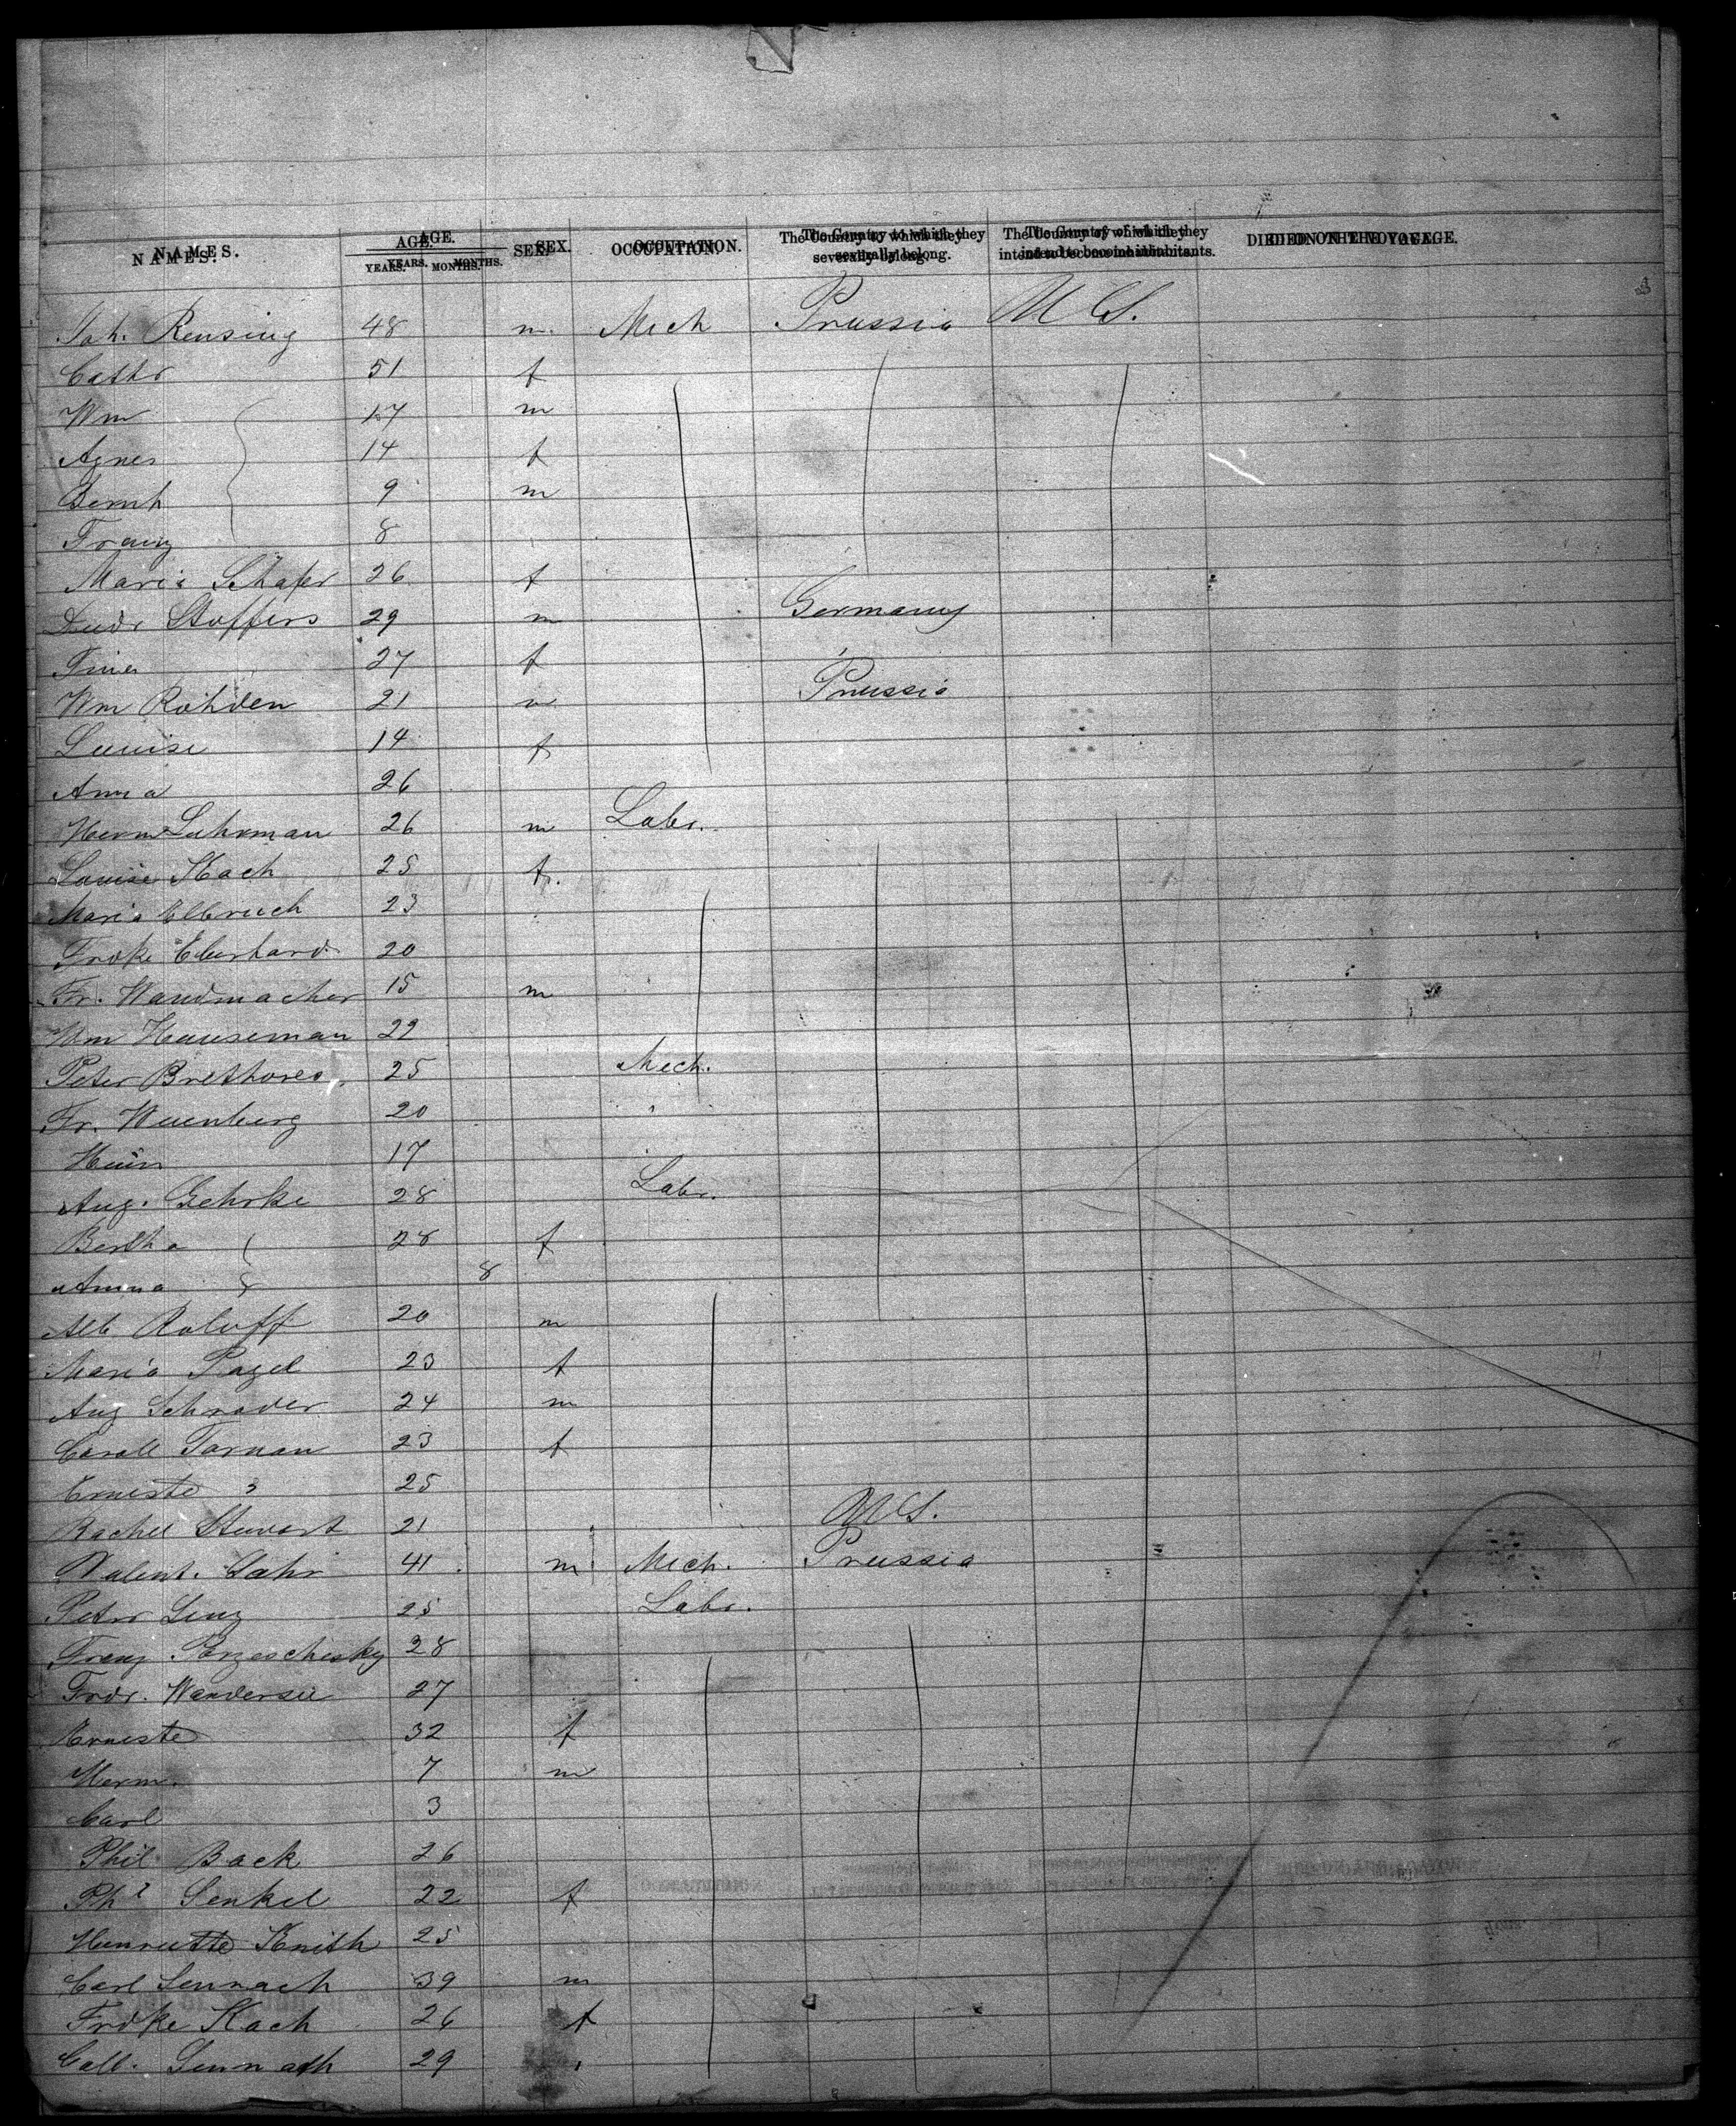 NAMES. AGE. SEX. OCCUPATION. The Country to which they severally belong. The Country of which they intend to become inhabitants. DIED ON THE VOYAGE.
YEARS. MONTHS.
Joh. Rensing 48 m. Mech Prussia U S.
Cathr 51 f
Wm 17 m
Agnes 14 f
Bernh 9 m
Franz 8
Maria Schafer 26 f
Diedr Stoffers 29 m Germany
27 f
Wm Rohden 21 m Prussia
Louise 14 f
Anna 26
Herm Luhrman 26 m Labr.
Louise Kach 25 f.
Maria Elbruch 23
Frdke Eberhard 20
Fr. Wandmacher 15 m
Wm Hauseman 22
Peter 25 Mech.
Fr. 20 "
Heinr 17
Aug. Gehrke 28 Labr.
Bertha 28 f
Anna 8
Alb Roluff 20 m
Maria Pagel 23 f
Aug Schrader 24 m
Tornau 23 f
Erneste " 25
Rachel Stewart 21 U S.
Valent. Lahr 41 m Mech. Prussia
Peter Lenz 25 Labr.
Franz 28
Frdr. Wandersee 27
Erneste 32 f
Herm. 7 m
Carl 3
Phil Back 26
Phl Senkel 22 f
Henriette Knith 25
Carl Sennach 39 m
Frdke Kach 26 f
29 "